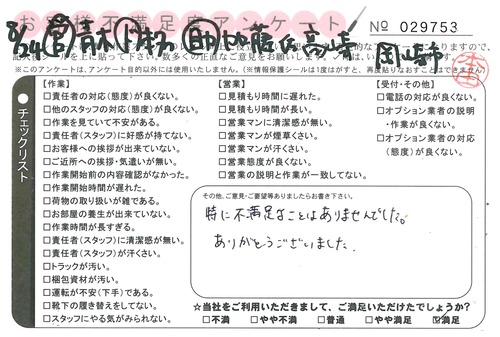 お客様不満足度アンケート
No 029753
8/24 営 青木 ド 加藤 高崎 岡崎
※このアンケートは、アンケート目的以外には使用いたしません。(※情報保護シールは1度はがすと、再度貼りなおすことはできません)
チェックリスト
【作業】
□責任者の対応(態度)が良くない。
□他のスタッフの対応(態度)が良くない。
□作業を見ていて不安がある。
□責任者(スタッフ)に好感が持てない。
□お客様への挨拶が出来ていない。
□ご近所への挨拶・気遣いが無い。
□作業開始前の内容確認がなかった。
□作業開始時間が遅れた。
□荷物の取り扱いが雑である。
□お部屋の養生が出来ていない。
□作業時間が長すぎる。
□責任者(スタッフ)に清潔感が無い。
□責任者(スタッフ)が汗くさい。
□トラックが汚い。
□梱包資材が汚い。
□運転が不安(下手)である。
□靴下の履き替えをしてない。
□スタッフにやる気がみられない。
【営業】
□見積もり時間に遅れた。
□見積もり時間が長い。
□営業マンに清潔感が無い。
□営業マンが煙草くさい。
□営業マンが汗くさい。
□営業態度が良くない。
□営業の説明と作業が一致してない。
【受付・その他】
□電話の対応が良くない。
□オプション業者の説明・作業が良くない。
□オプション業者の対応(態度)が良くない。
その他、ご意見・ご要望等ありましたらお書き下さい。
特に不満足なことはありませんでした。
ありがとうございました。
☆当社をご利用いただきまして、ご満足いただけたでしょうか?
□不満 □やや不満 □普通 □やや満足 ☑満足